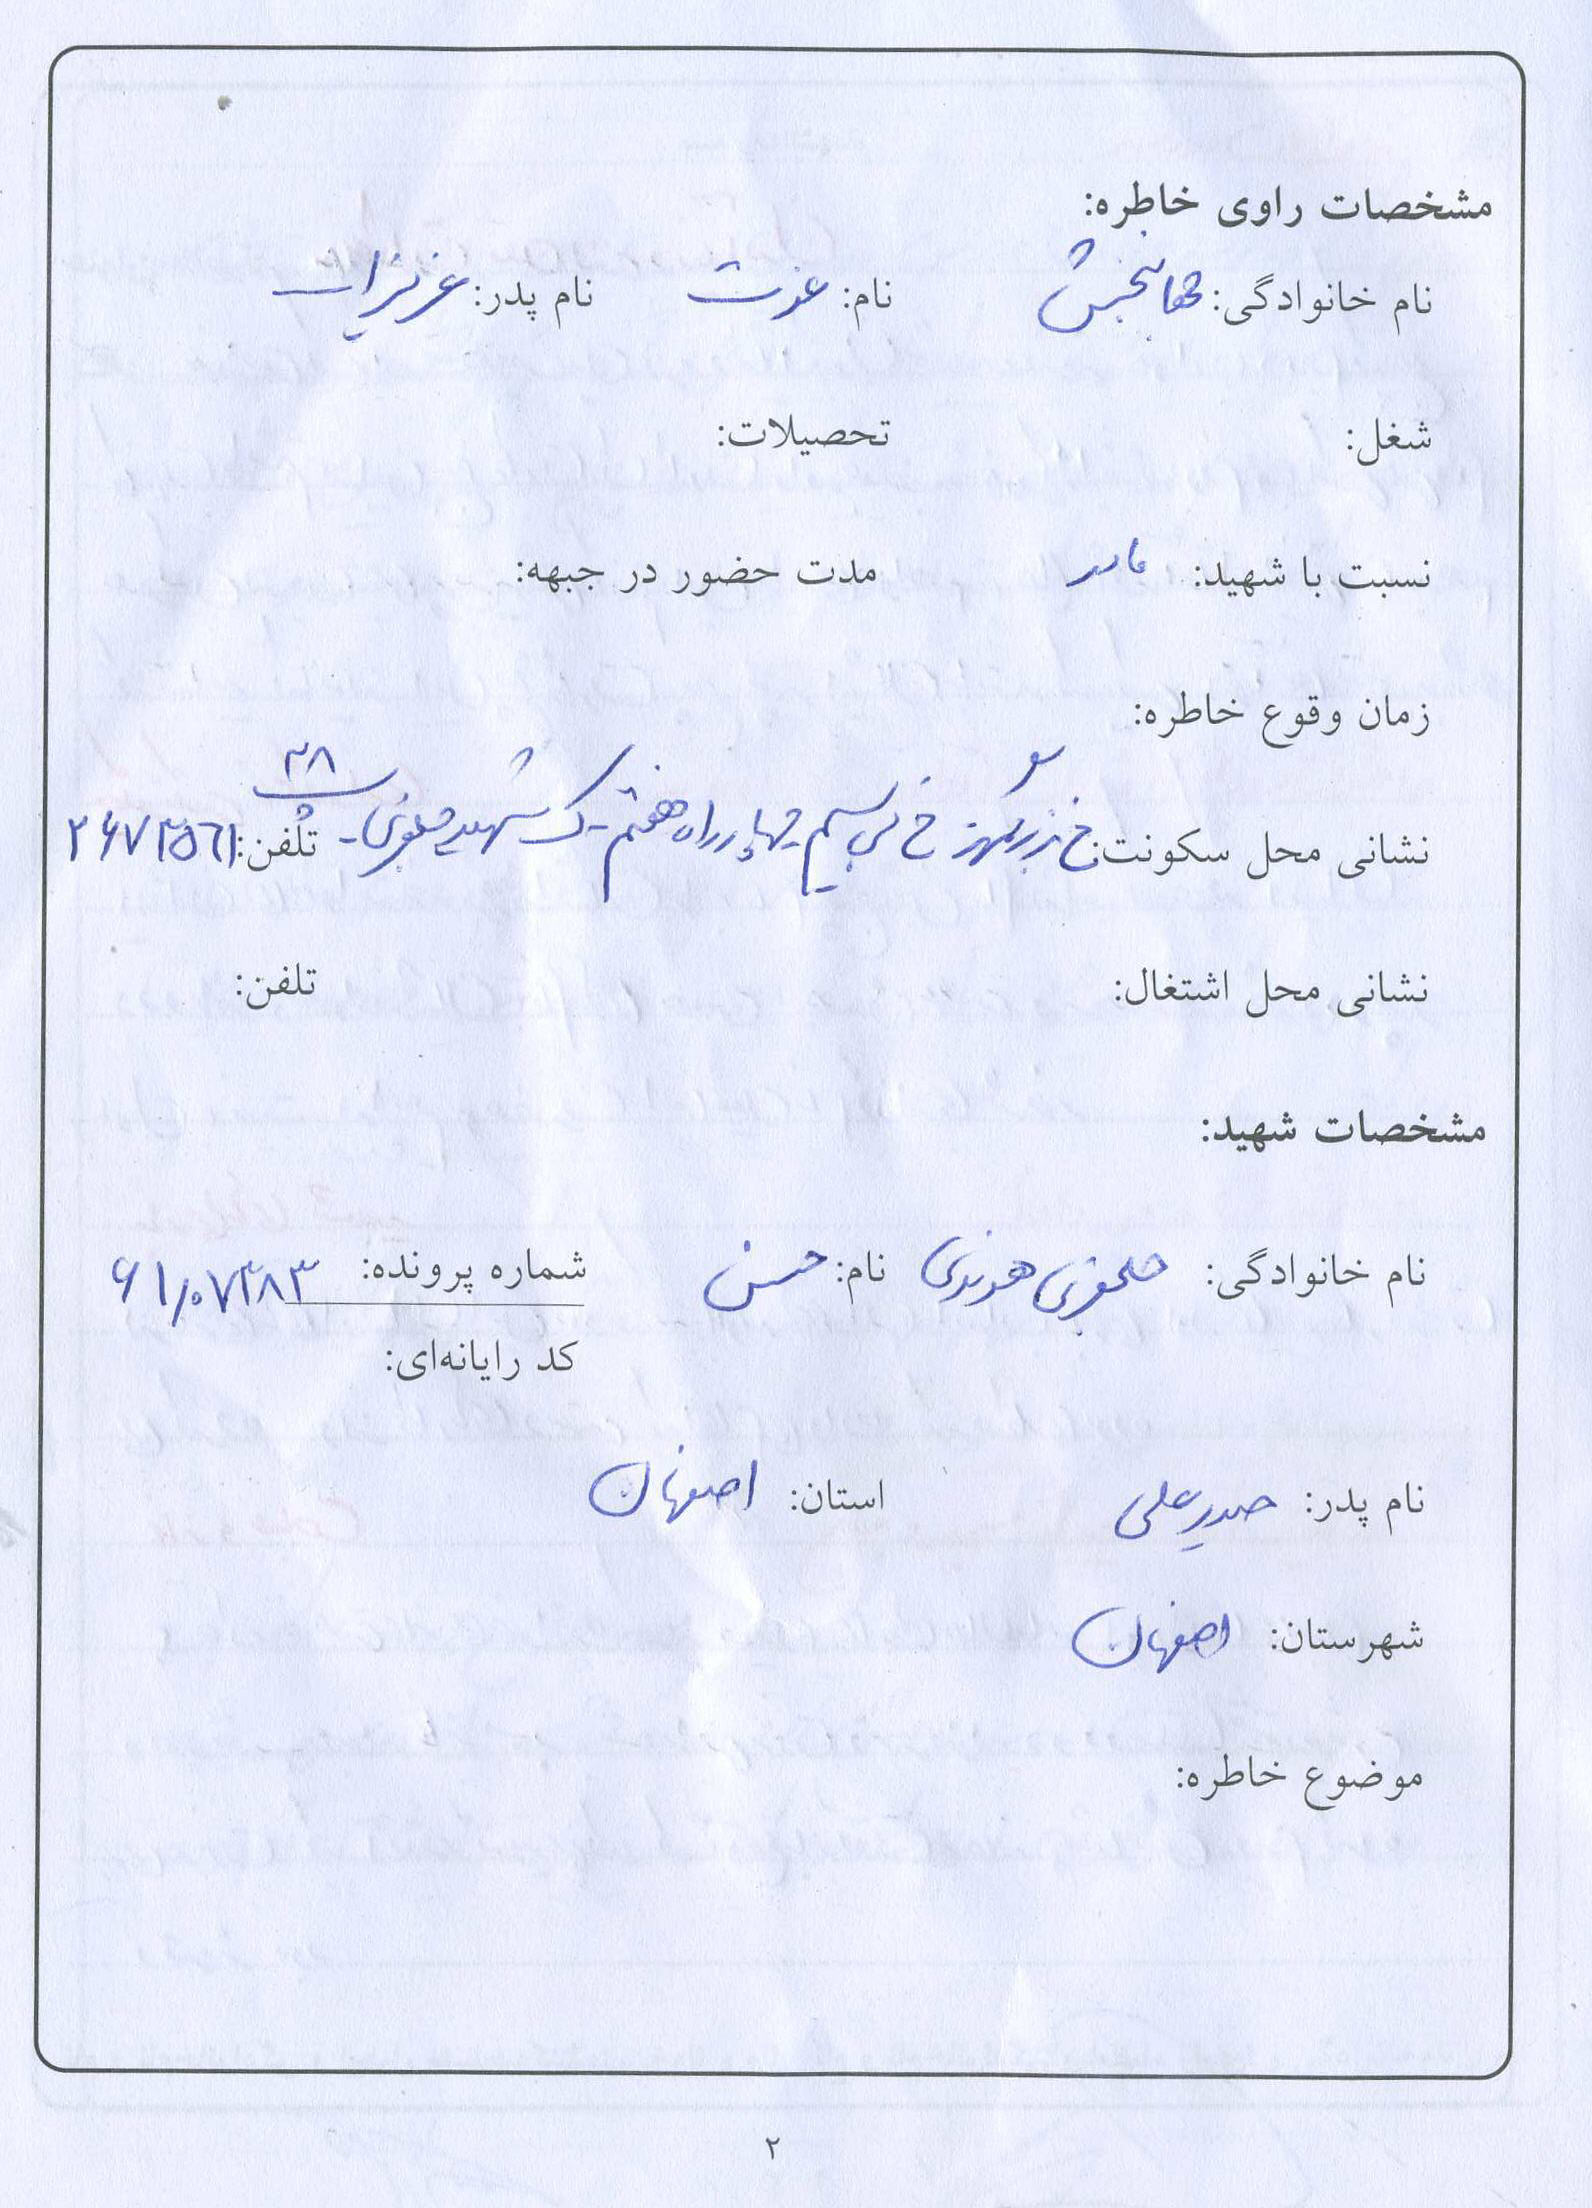 مشخصات راوی خاطره:
نام خانوادگی: جهانبخش نام: عزت نام پدر: عزیزاله
شغل: تحصیلات:
نسبت با شهید: مادر مدت حضور در جبهه:
زمان وقوع خاطره:
نشانی محل سکونت: خ بزرگمهر خ بی سیم چهارراه هفتم - ک شهید جعفری - پ ۳۸ تلفن: ۲۶۷۳۵۶۱
نشانی محل اشتغال: تلفن:
مشخصات شهید:
نام خانوادگی: جعفری هرندی نام: حسن شماره پرونده: ۶۱٫۰۷۳۸۳
کد رایانه‌ای:
نام پدر: حیدرعلی استان: اصفهان
شهرستان: اصفهان
موضوع خاطره:
۲